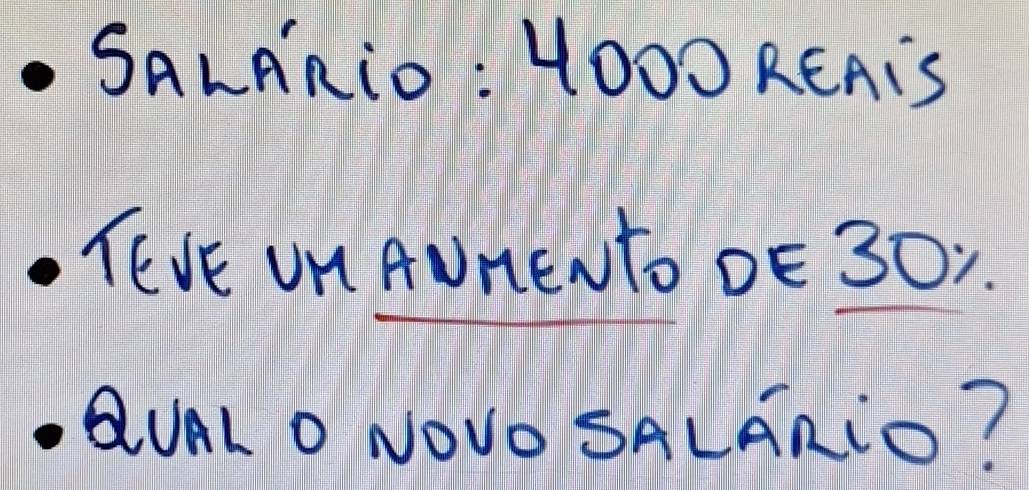 • SALÁRIO: 4000 REAIS
• TEVE UM AUMENTO DE 30%.
• QUAL O NOVO SALÁRIO?